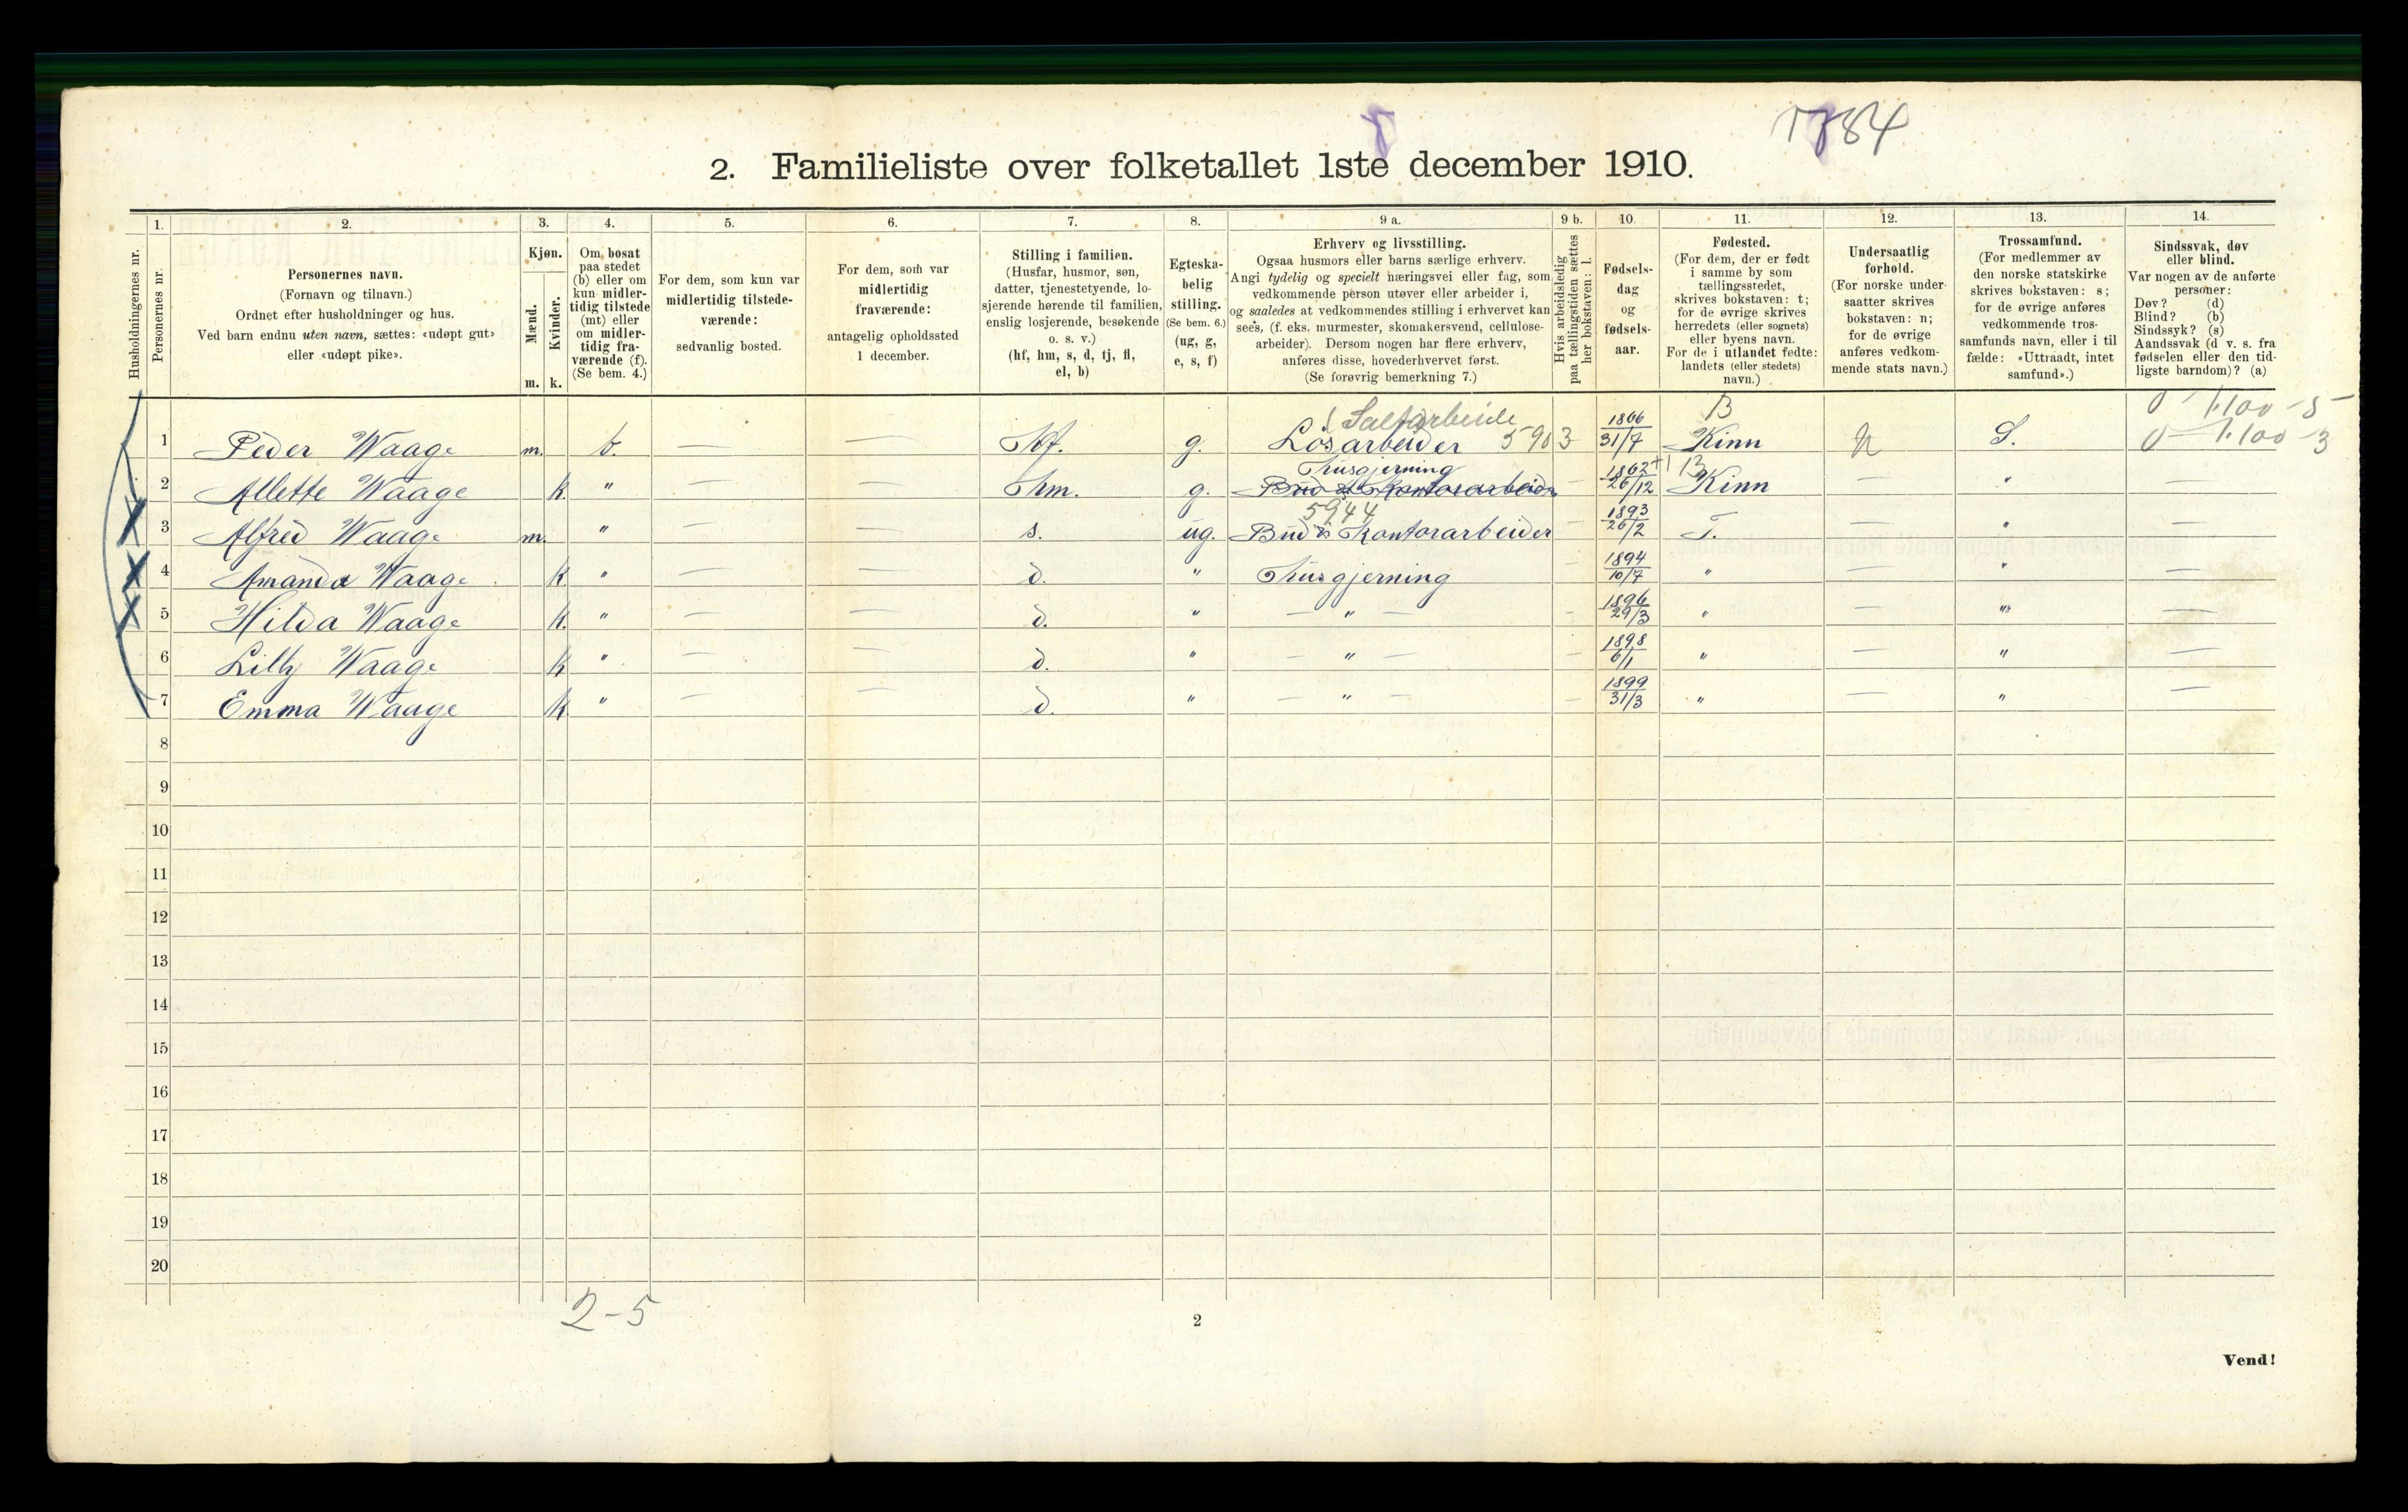 8
1784
2. Familieliste over folketallet 1ste december 1910.
1. 2. 3. 4. 5. 6. 7. 8. 9 a. 9 b. 10. 11. 12. 13. 14.
Husholdningernes nr.
Personernes nr.
Personernes navn.
(Fornavn og tilnavn.)
Ordnet efter husholdninger og hus.
Ved barn endnu uten navn, sættes: «udøpt gut»
eller «udøpt pike».
Kjøn.
Mænd.
Kvinder.
m. k.
Om bosat
paa stedet
(b) eller om
kun midler-
tidig tilstede
(mt) eller
om midler-
tidig fra-
værende (f).
(Se bem. 4.)
For dem, som kun var
midlertidig tilstede-
værende:
sedvanlig bosted.
For dem, som var
midlertidig
fraværende:
antagelig opholdssted
1 december.
Stilling i familien.
(Husfar, husmor, søn,
datter, tjenestetyende, lo-
sjerende hørende til familien,
enslig losjerende, besøkende
o. s. v.)
(hf, hm, s, d, tj, fl,
el, b)
Egteska-
belig
stilling.
(Se bem. 6.)
(ug, g,
e, s, f)
Erhverv og livsstilling.
Ogsaa husmors eller barns særlige erhverv.
Angi tydelig og specielt næringsvei eller fag, som
vedkommende person utøver eller arbeider i,
og saaledes at vedkommendes stilling i erhvervet kan
sees, (f. eks. murmester, skomakersvend, cellulose-
arbeider). Dersom nogen har flere erhverv,
anføres disse, hovederhvervet først.
(Se forøvrig bemerkning 7.)
Hvis arbeidsledig
paa tællingstiden sættes
her bokstaven: l.
Fødsels-
dag
og
fødsels-
aar.
Fødested.
(For dem, der er født
i samme by som
tællingsstedet,
skrives bokstaven: t;
for de øvrige skrives
herredets (eller sognets)
eller byens navn.
For de i utlandet fødte:
landets (eller stedets)
navn.)
Undersaatlig
forhold.
(For norske under-
saatter skrives
bokstaven: n;
for de øvrige
anføres vedkom-
mende stats navn.)
Trossamfund.
(For medlemmer av
den norske statskirke
skrives bokstaven: s;
for de øvrige anføres
vedkommende tros-
samfunds navn, eller i til
fælde: «Uttraadt, intet
samfund».)
Sindssvak, døv
eller blind.
Var nogen av de anførte
personer:
Døv? (d)
Blind? (b)
Sindssyk? (s)
Aandssvak (d. v. s. fra
fødselen eller den tid-
ligste barndom)? (a)
(Saltarbeide 1866 B 0 1.100 - 5
1 Peder Waage m. b. — — Hf. g. Løsarbeider 5903 31/7 Kinn n S. 0 - 1.100 - 3
Husgjerning 1862 B
2 Allette Waage k. " — — Hm. g. Bud & Kontorarbeider — 26/12 Kinn — "
5944 1893
3 Alfred Waage m. " — — s. ug. Bud & Kontorarbeider — 26/2 T. — " —
1894
4 Amanda Waage k " — — d. " Husgjerning — 10/7 " — " —
1896
5 Hilda Waage k. " — — d. " — " — — 29/3 " — " —
1898
6 Lilly Waage k " — — d. " — " — — 6/1 " — " —
1899
7 Emma Waage k " — — d. " — " — — 31/3 " — " —
8
9
10
11
12
13
14
15
16
17
18
19
20
2-5
2
Vend!